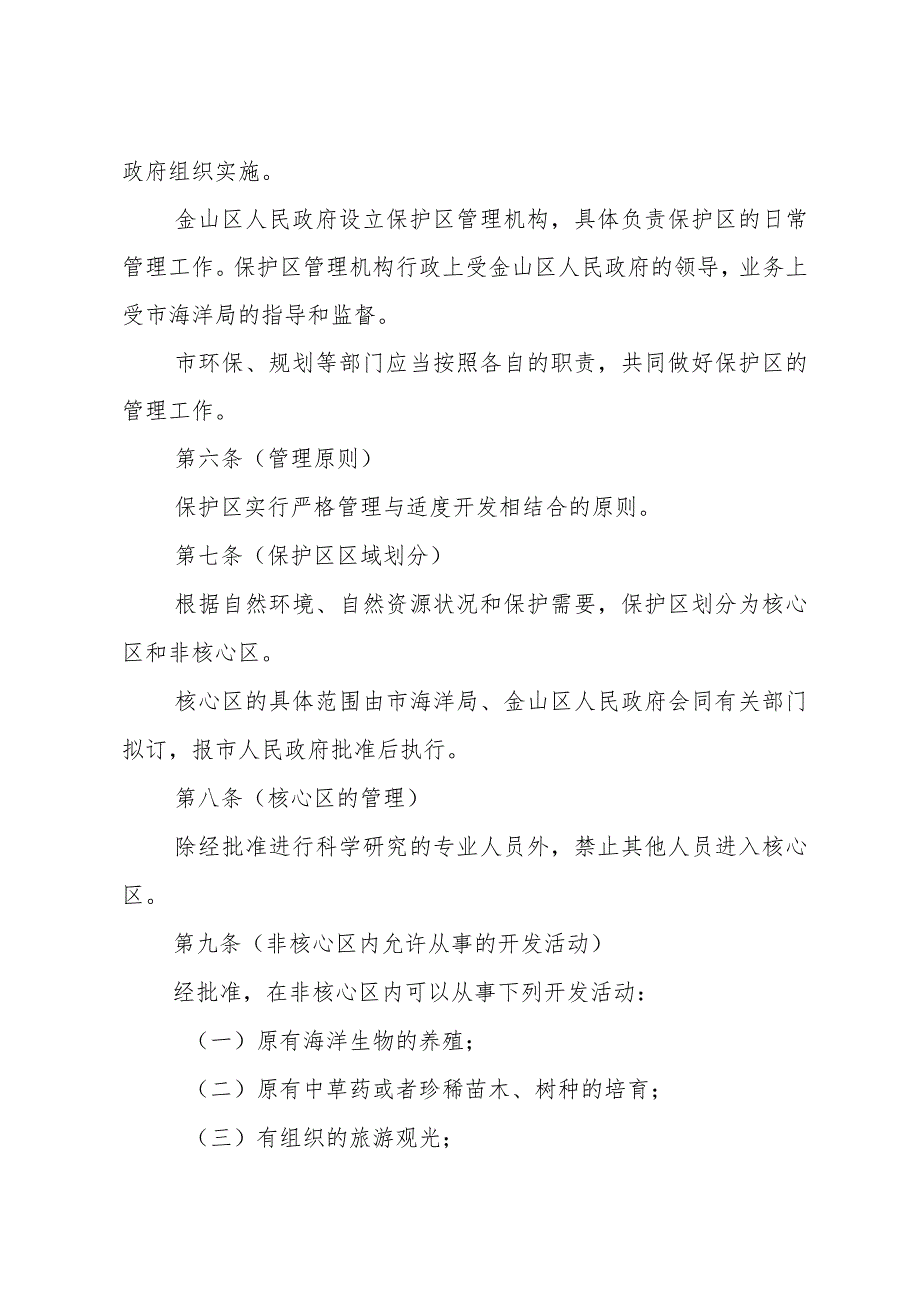 政府组织实施。
金山区人民政府设立保护区管理机构，具体负责保护区的日常
管理工作。保护区管理机构行政上受金山区人民政府的领导，业务上
受市海洋局的指导和监督。
市环保、规划等部门应当按照各自的职责，共同做好保护区的
管理工作。
第六条（管理原则）
保护区实行严格管理与适度开发相结合的原则。
第七条（保护区区域划分）
根据自然环境、自然资源状况和保护需要，保护区划分为核心
区和非核心区。
核心区的具体范围由市海洋局、金山区人民政府会同有关部门
拟订，报市人民政府批准后执行。
第八条（核心区的管理）
除经批准进行科学研究的专业人员外，禁止其他人员进入核心
区。
第九条（非核心区内允许从事的开发活动）
经批准，在非核心区内可以从事下列开发活动：
（一）原有海洋生物的养殖；
（二）原有中草药或者珍稀苗木、树种的培育；
（三）有组织的旅游观光；